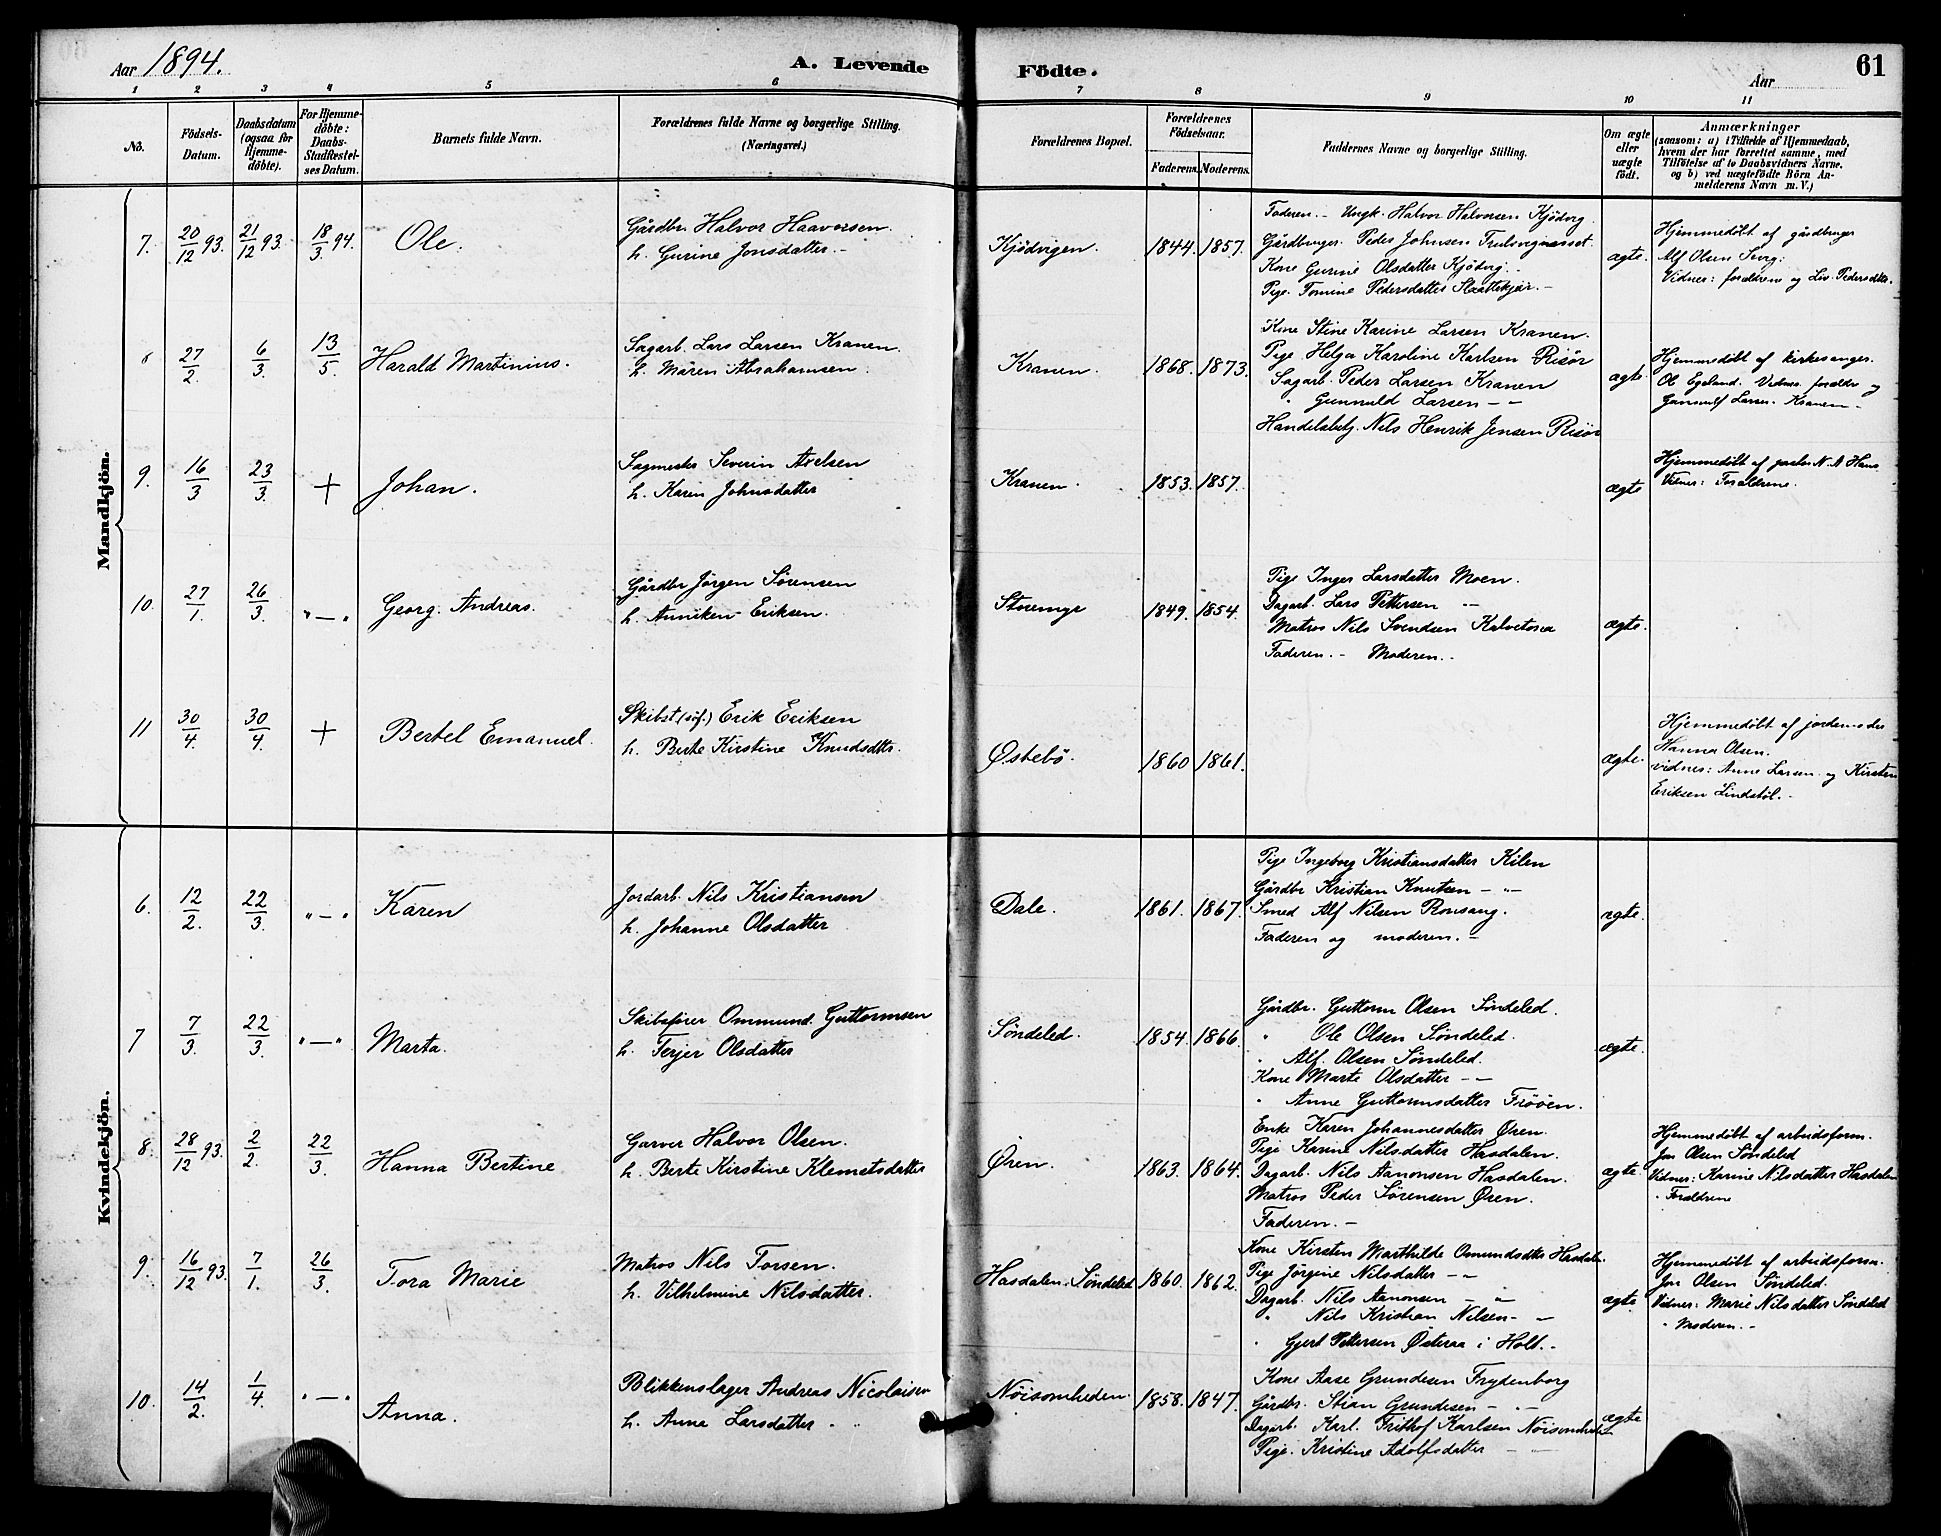 Aar 1894.
A. Levende
Födte.
Aar
61
1 2 3 4 5 6 7 8 9 10 11
No.
Födsels-
Datum.
Daabsdatum
(ogsaa for
Hjemme-
döbte).
For Hjemme-
döbte:
Daabs-
Stadfæstel-
ses Datum.
Barnets fulde Navn.
Forældrenes fulde Navne og borgerlige Stilling.
(Næringsvei.)
Forældrenes Bopæl.
Forældrenes
Födselsaar.
Faderens. Moderens.
Faddernes Navne og borgerlige Stilling.
Om ægte
eller
uægte
födt.
Anmærkninger
(saasom: a) i Tilfælde af Hjemmedaab,
hvem der har forrettet samme, med
Tilföielse af to Daabsvidners Navne,
og b) ved uægtefödte Börn An-
melderens Navn m. V.)
Mandkjön.
7. 20/12 93. 21/12 93. 18/3 94. Ole.
Gårdbr. Halvor Haavorsen.
h. Gurine Jonsdatter.-
Kjödvigen. 1844. 1857.
Faderen.- Ungk. Halvor Halvorsen Kjödvig.
Gårdbruger. Peder Johnsen
Kone Gurine Olsdatter Kjödvig.
Pige. Tomine Pedersdatter
ægte.
Hjemmedöbt af gårdbruger
Alf Olsen
Vidner: forældrene og Liv Pedersdtr.
8 27/2. 6/3. 13/5. Harald Martinius.
Sagarb. Lars Larsen Kranen.
h. Maren Abrahamsen.
Kranen. 1868. 1873.
Kone Stine Karine Larsen Kranen.
Pige. Helga Karoline Karlsen Risör
Sagarb. Peder Larsen Kranen
" Gunnuld Larsen - -
Handelsbetj. Nils Henrik Jensen Risör
ægte
Hjemmedöbt af kirkesanger.
Ol. Egeland. Vidner. forældre og
Larsen. Kranen -
9. 16/3 23/3. + Johan.
Sagmester Severin Axelsen
h. Karen Johnsdatter
Kranen. 1853. 1857.
ægte
Hjemmedöbt af pastor N. A Hans
Vidner: Forældrene.
10. 27/1. 26/3. "-" Georg. Andreas.
Gårdbr Jörgen Sörensen
h. Anniken Eriksen.
1849. 1854.
Pige Inger Larsdatter Moen.
Dagarb. Lars Pettersen "
Matros Nils Svendsen
Faderen.- Moderen.-
ægte.
11 30/4. 30/4. + Bertel Emanuel.
Skibst(öf.) Erik Eriksen
h. Berte Kirstine Knudsdtr.
Östebö. 1860 1861.
ægte.
Hjemmedöbt af jordemoder
Hanna Olsen.
vidner: Anne Larsen og Kirsten
Eriksen Lindstöl.-
Kvindekjön.
6. 12/2. 22/3. "-" Karen
Jordarb. Nils Kristiansen
h. Johanne Olsdatter
Dale. 1861. 1867.
Pige Ingeborg Kristiansdatter Kilen
Gårdbr Kristian Knutsen - "-
Smed Alf Nilsen
Faderen og moderen.-
ægte.
7 7/3. 22/3. "-" Marta.
Skibsförer Ommund. Guttormsen
h. Terjer Olsdatter
Söndeled. 1854. 1866.
Gårdbr. Guttorm Olsen Söndeled.
" Ole Olsen Söndeled.
" Alf. Olsen Söndeled.
Kone Marte Olsdatter - -
" Anne Guttormsdatter Frööen.
ægte.
8. 28/12 93. 2/2. 22/3. Hanna Bertine
Garver Halvor Olsen.
h. Berte Kirstine Klemetsdatter
Ören. 1863. 1864.
Enke Karen Johannesdatter Ören.
Pige Karine Nilsdatter Hasdalen.
Dagarb. Nils Aanonsen Hasdalen.
Matros Peder Sörensen Ören.
Faderen.-
ægte.
Hjemmedöbt af arbeidsform.
Jon Olsen Söndeled
Vidner: Karine Nilsdatter Hasdalen
" Forældrene
9. 16/12 93. 7/1. 26/3. Tora Marie
Matros Nils Torsen.
h. Vilhelmine Nilsdatter.
Hasdalen. Söndeled 1860. 1862.
Kone Kirsten Marthilde Omundsdtr Hasdalen
Pige Jörgine Nilsdatter - -
Dagarb. Nils Aanonsen - "
" Nils Kristian Nilsen- -
" Gjert Pettersen Österaa i Holt.-
ægte
Hjemmedöbt af arbeidsform.
Jon Olsen Söndeled.
Vidner: Marie Nilsdatter Söndeled
" Moderen.-
10. 14/2. 1/4. "-" Anna.
Blikkenslager Andreas Nicolaisen
h. Anna Larsdatter
Nöisomheden. 1858. 1847.
Kone Aase Grundesen Frydenborg
Gårdbr. Stian Grundesen- "-
Dagarb. Karl. Frithof Karlsen Nöisomhed
Pige. Kristine Adolfsdatter - -
ægte